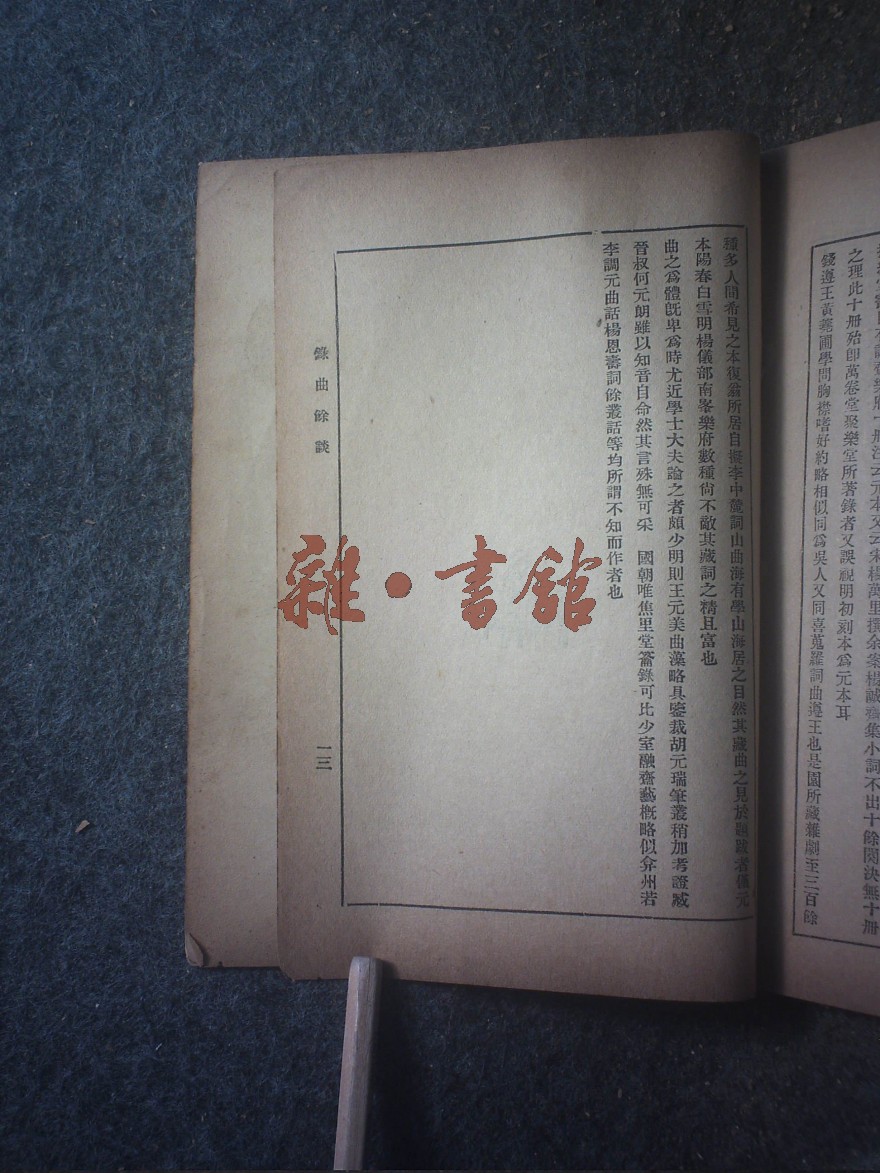 之理此十册殆卽萬卷堂聚樂堂所著錄者又誤視明初刻本爲元本耳
錢遵王黃蕘圃學問胸襟嗜好約略相似同爲吳人又同喜蒐羅詞曲遵王也是園所藏雜劇至三百餘
種多人間希見之本復翁所居自擬李中麓詞山曲海有學山海居之目然其藏曲之見於題跋者僅元
本陽春白雪明楊儀部南峯樂府數種尙不敵其藏詞之精且富也
曲之爲體旣卑爲時尤近學士大夫論之者頗少明則王元美曲藻略具鑒裁胡元瑞筆叢稍加考證臧
晉叔何元朗雖以知音自命然其言殊無可采 國朝唯焦里堂籥錄可比少室融齋藝槪略似弇州若
李調元曲話楊恩壽詞餘叢話等均所謂不知而作者也
錄曲餘談
二三
雜·書館